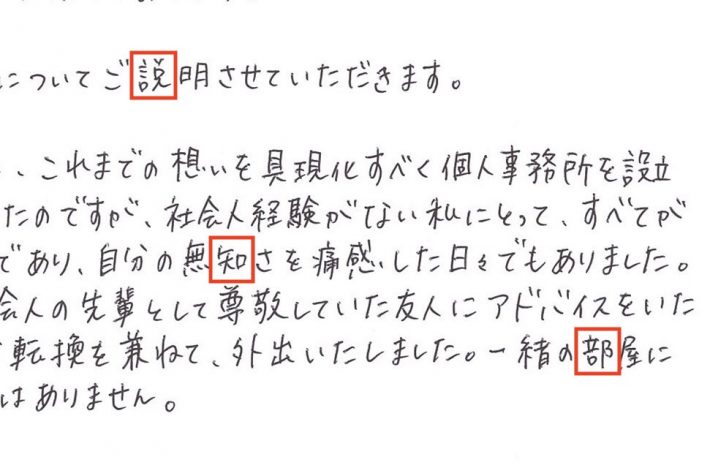 についてご説明させていただきます。
、これまでの想いを具現化すべく個人事務所を設立
たのですが、社会人経験がない私にとって、すべてが
であり、自分の無知さを痛感した日々でもありました。
会人の先輩として尊敬していた友人にアドバイスをいた
転換を兼ねて、外出いたしました。一緒の部屋に
はありません。